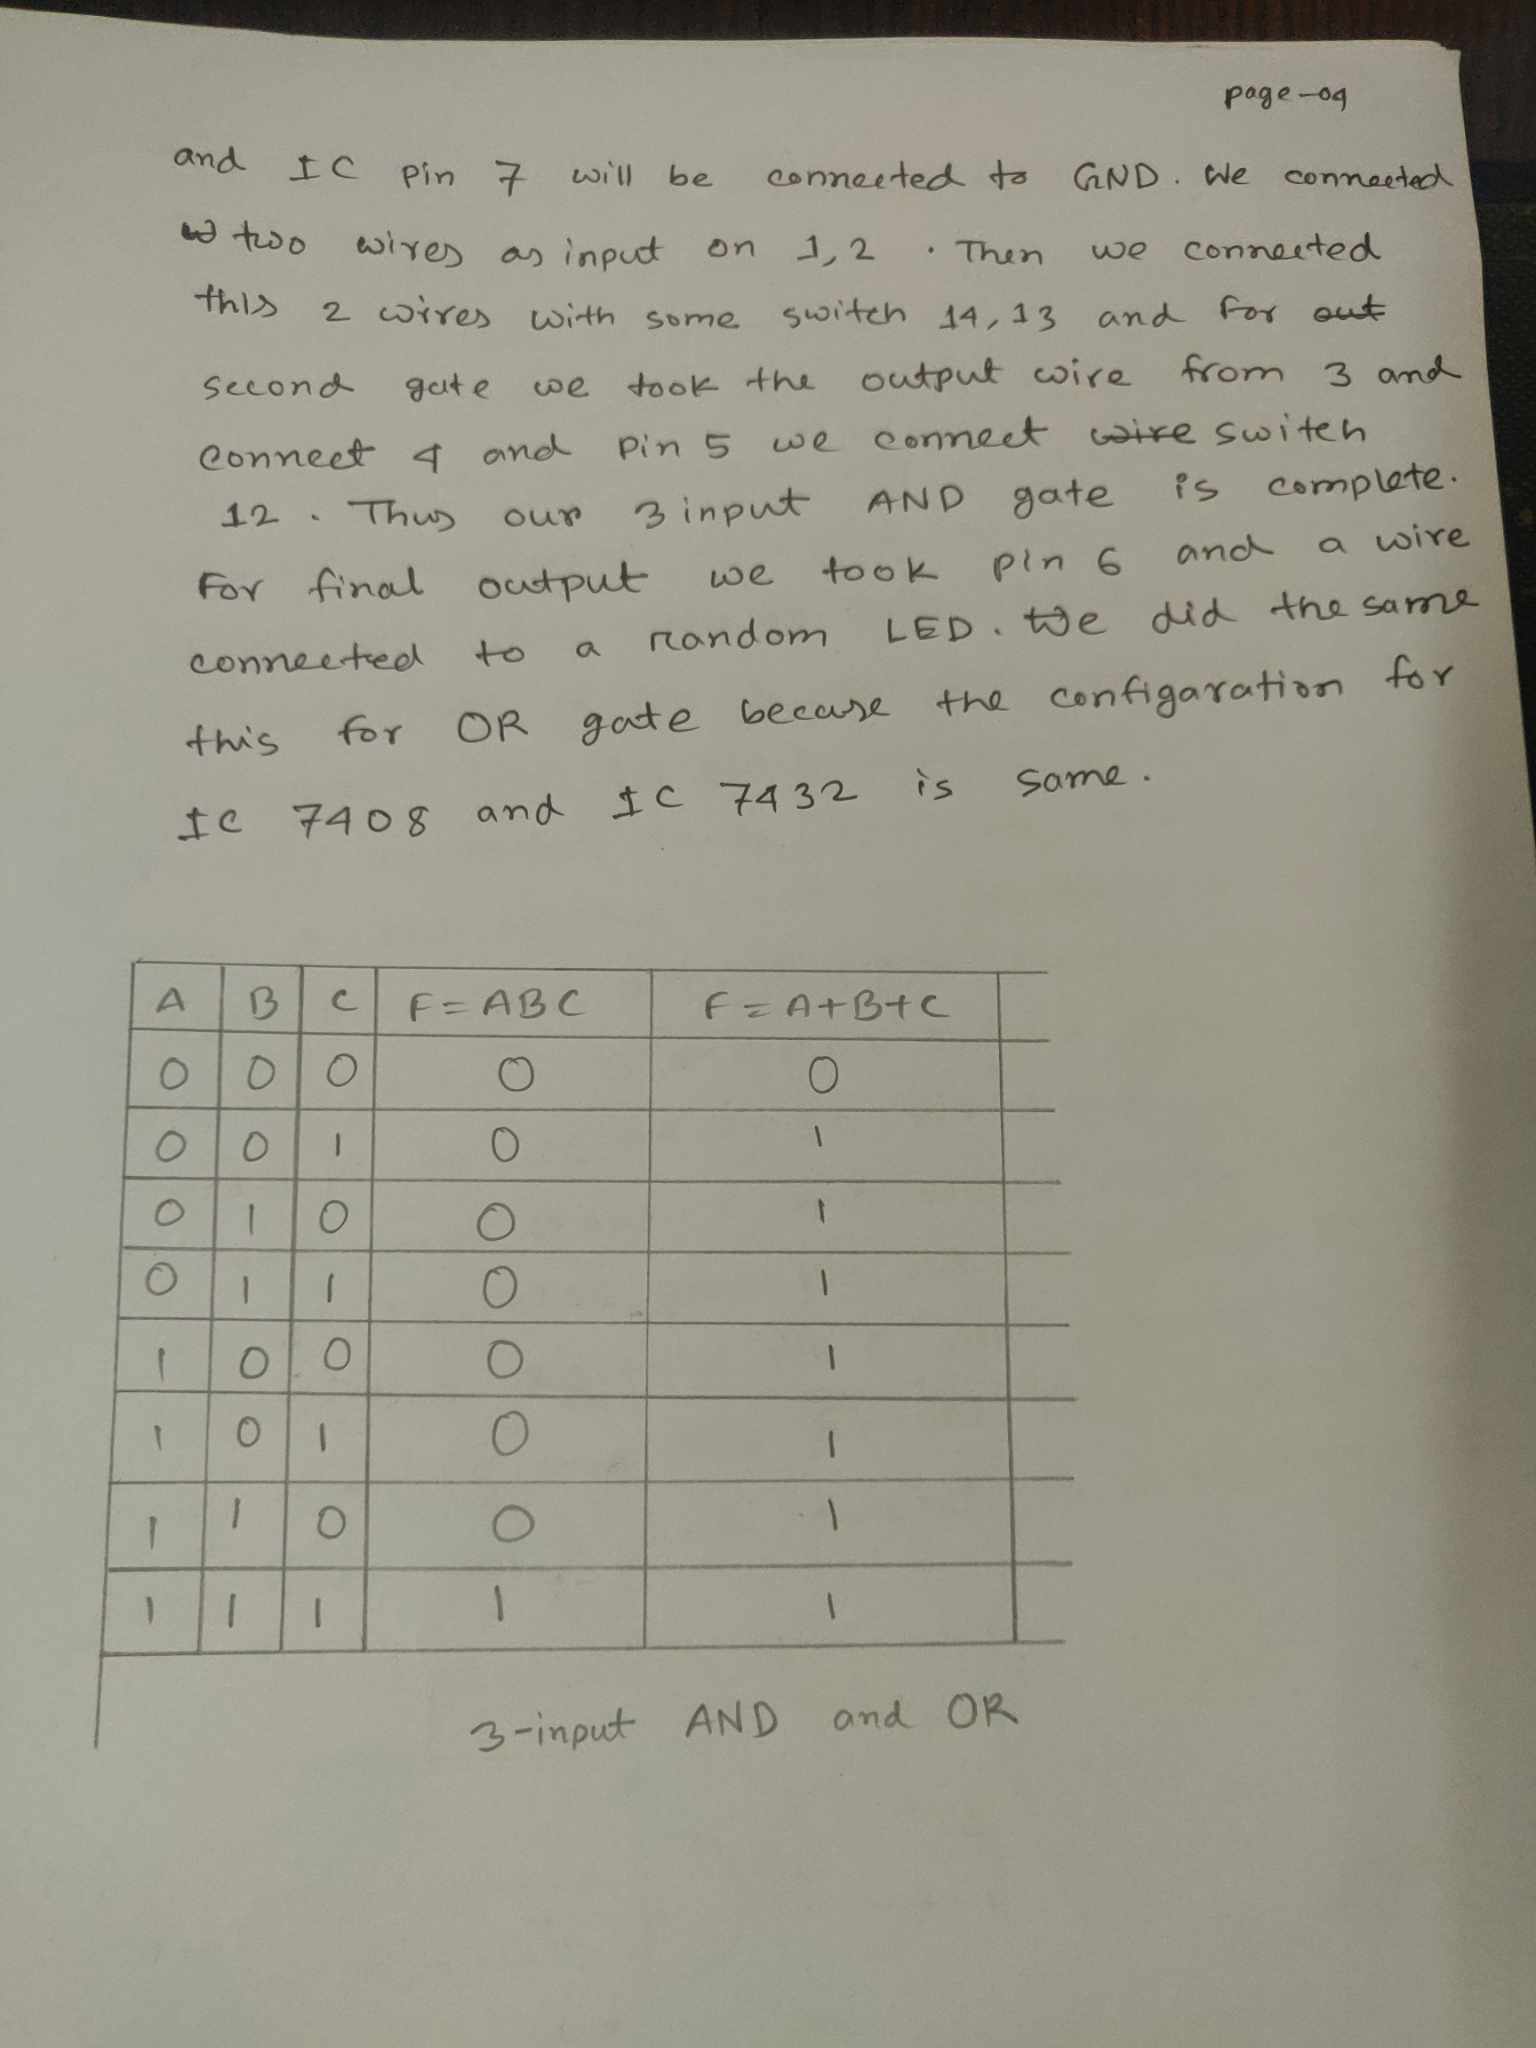 page-04
and IC pin 7 will be connected to GND. We connected
two wires as input on 1,2 . Then we connected
this 2 wires with some switch 14,13 and for out
second gate we took the output wire from 3 and
connect 4 and pin 5 we connect wire switch
12 . Thus our 3 input AND gate is complete.
For final output we took pin 6 and a wire
connected to a random LED. We did the same
this for OR gate becuse the configaration for
IC 7408 and IC 7432 is same.
A B C F=ABC F=A+B+C
0 0 0 0 0
0 0 1 0 1
0 1 0 0 1
0 1 1 0 1
1 0 0 0 1
1 0 1 0 1
1 1 0 0 1
1 1 1 1 1
3-input AND and OR